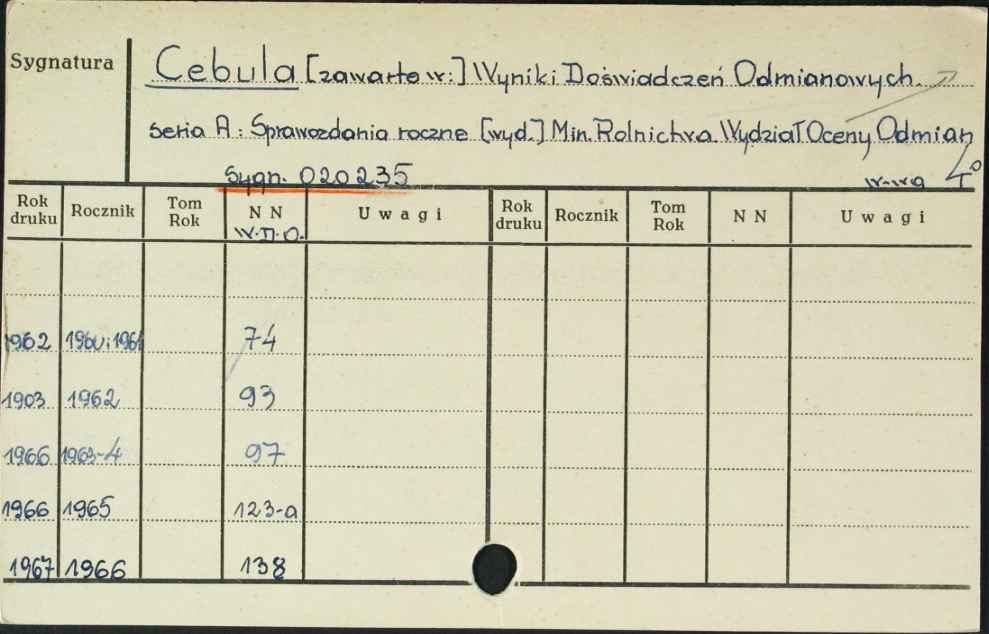 Sygnatura
Cebula [zawarte w:] Wyniki Doświadczeń Odmianowych.
Seria A: Sprawozdania roczne [wyd.] Min. Rolnictwa Wydział Oceny Odmian
Sygn. 020235 W-wa 4°
Rok druku Rocznik Tom Rok NN Uwagi Rok druku Rocznik Tom Rok NN Uwagi
W.D.O.
1962 1960 i 1961 74
1903 1962 93
1966 1963-4 97
1966 1965 123-a
1967 1966 138